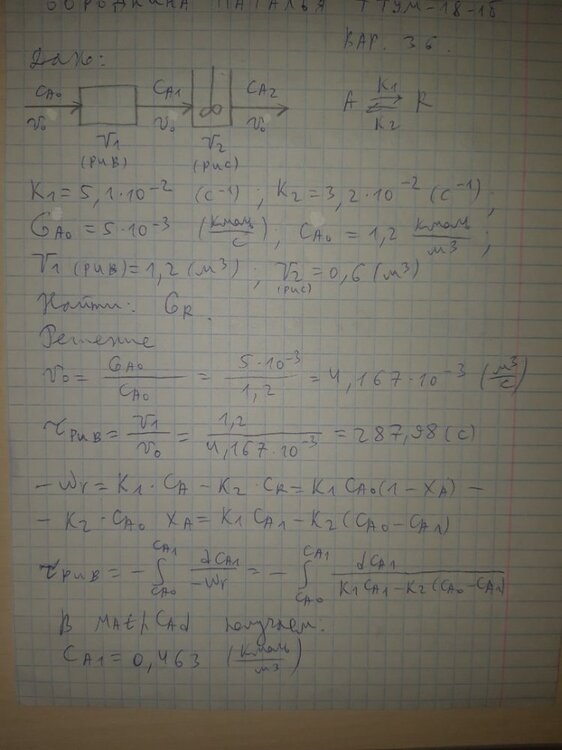 БОРОДКИНА НАТАЛЬЯ ТТУМ-18-1б
ВАР. 36.
Дано:
CA0 CA1 CA2 A ⇄ R
K1
K2
V0 V0 V0
V1 V2
(РИВ) (РИС)
K1 = 5,1·10^-2 (с^-1) ; K2 = 3,2·10^-2 (с^-1) ;
GA0 = 5·10^-3 (кмоль/с) , CA0 = 1,2 кмоль/м3 ;
V1 (РИВ) = 1,2 (м3) ; V2 (РИС) = 0,6 (м3)
Найти: GR.
Решение
V0 = GA0/CA0 = 5·10^-3/1,2 = 4,167·10^-3 (м3/с)
τРИВ = V1/V0 = 1,2/4,167·10^-3 = 287,98 (с)
-Wr = K1·CA - K2·CR = K1CA0(1-XA) -
- K2·CA0 XA = K1CA1 - K2(CA0-CA1)
τРИВ = - ∫CA0^CA1 dCA1/-Wr = - ∫CA0^CA1 dCA1/K1CA1-K2(CA0-CA1)
В MAthCAd получаем.
CA1 = 0,463 (кмоль/м3)